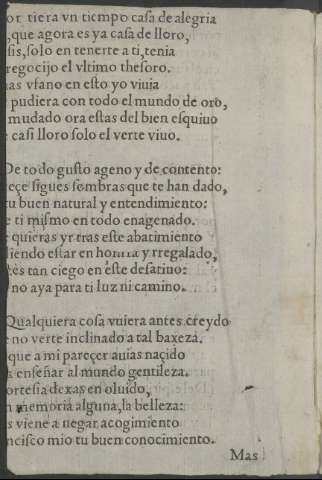 tiera vn tiempo casa de alegria
,que agora es ya casa de lloro,
sis,solo en tenerte a ti,tenia
regocijo el vltimo thesoro.
vfano en esto yo viuia
pudiera con todo el mundo de oro,
mudado ora estas del bien esquiuo
casi lloro solo el verte viuo.
De todo gusto ageno y de contento:
sigues sombras que te han dado,
tu buen natural y entendimiento:
e ti mismo en todo enagenado.
quieras yr tras este abatimiento
diendo estar en honrra y rregalado,
tan ciego en este desatino:
no aya para ti luz ni camino.
Qualquiera cosa vuiera antes creydo
no verte inclinado a tal baxeza.
que a mi pareçer auias naçido
a enseñar al mundo gentileza.
ortesia dexas en oluido,
memoria alguna,la belleza:
viene a negar acogimiento
ncisco mio tu buen conocimiento.
Mas